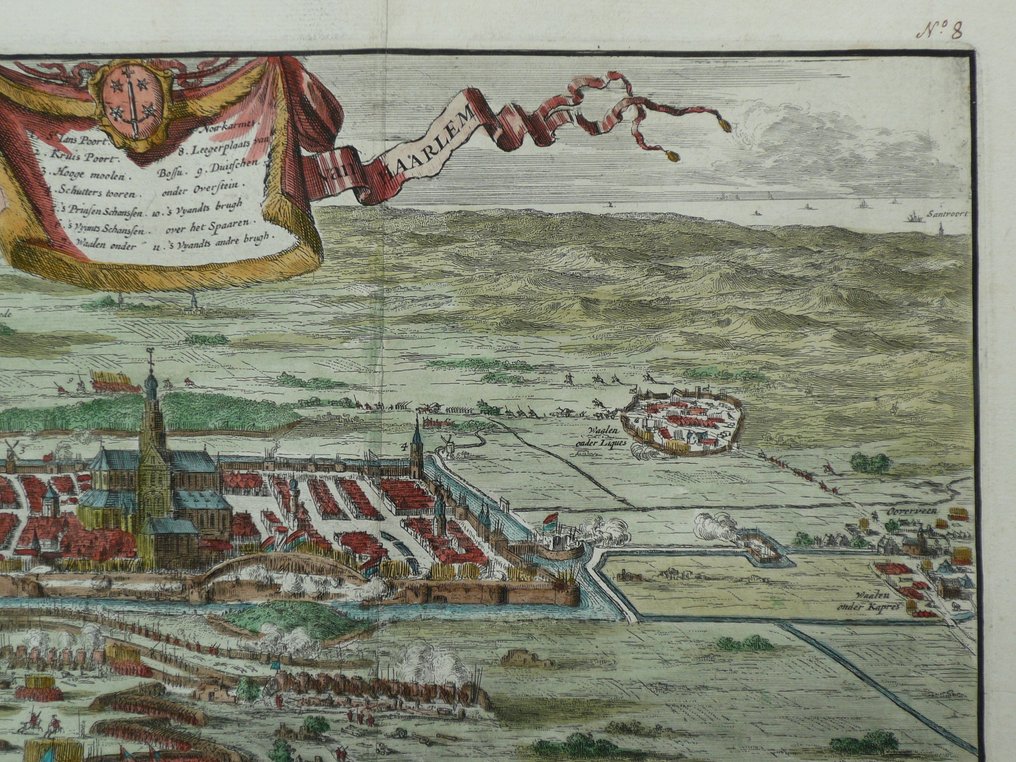 Nº 8
van HAARLEM
S.t Jans Poort.
Kruis Poort.
3. Hooge moolen.
Schutters tooren.
's Prinsen Schanssen.
's Vyants Schanssen.
Waalen onder
Noirkarmes
8. Leegerplaats van
Bossu. 9. Duitschen
onder Overstein.
10. 's Vyandts brugh
over het Spaaren.
11. 's Vyandts andre brugh.
Santvoort
4
Waalen
onder Liques
Overveen
Waalen
onder Kapres